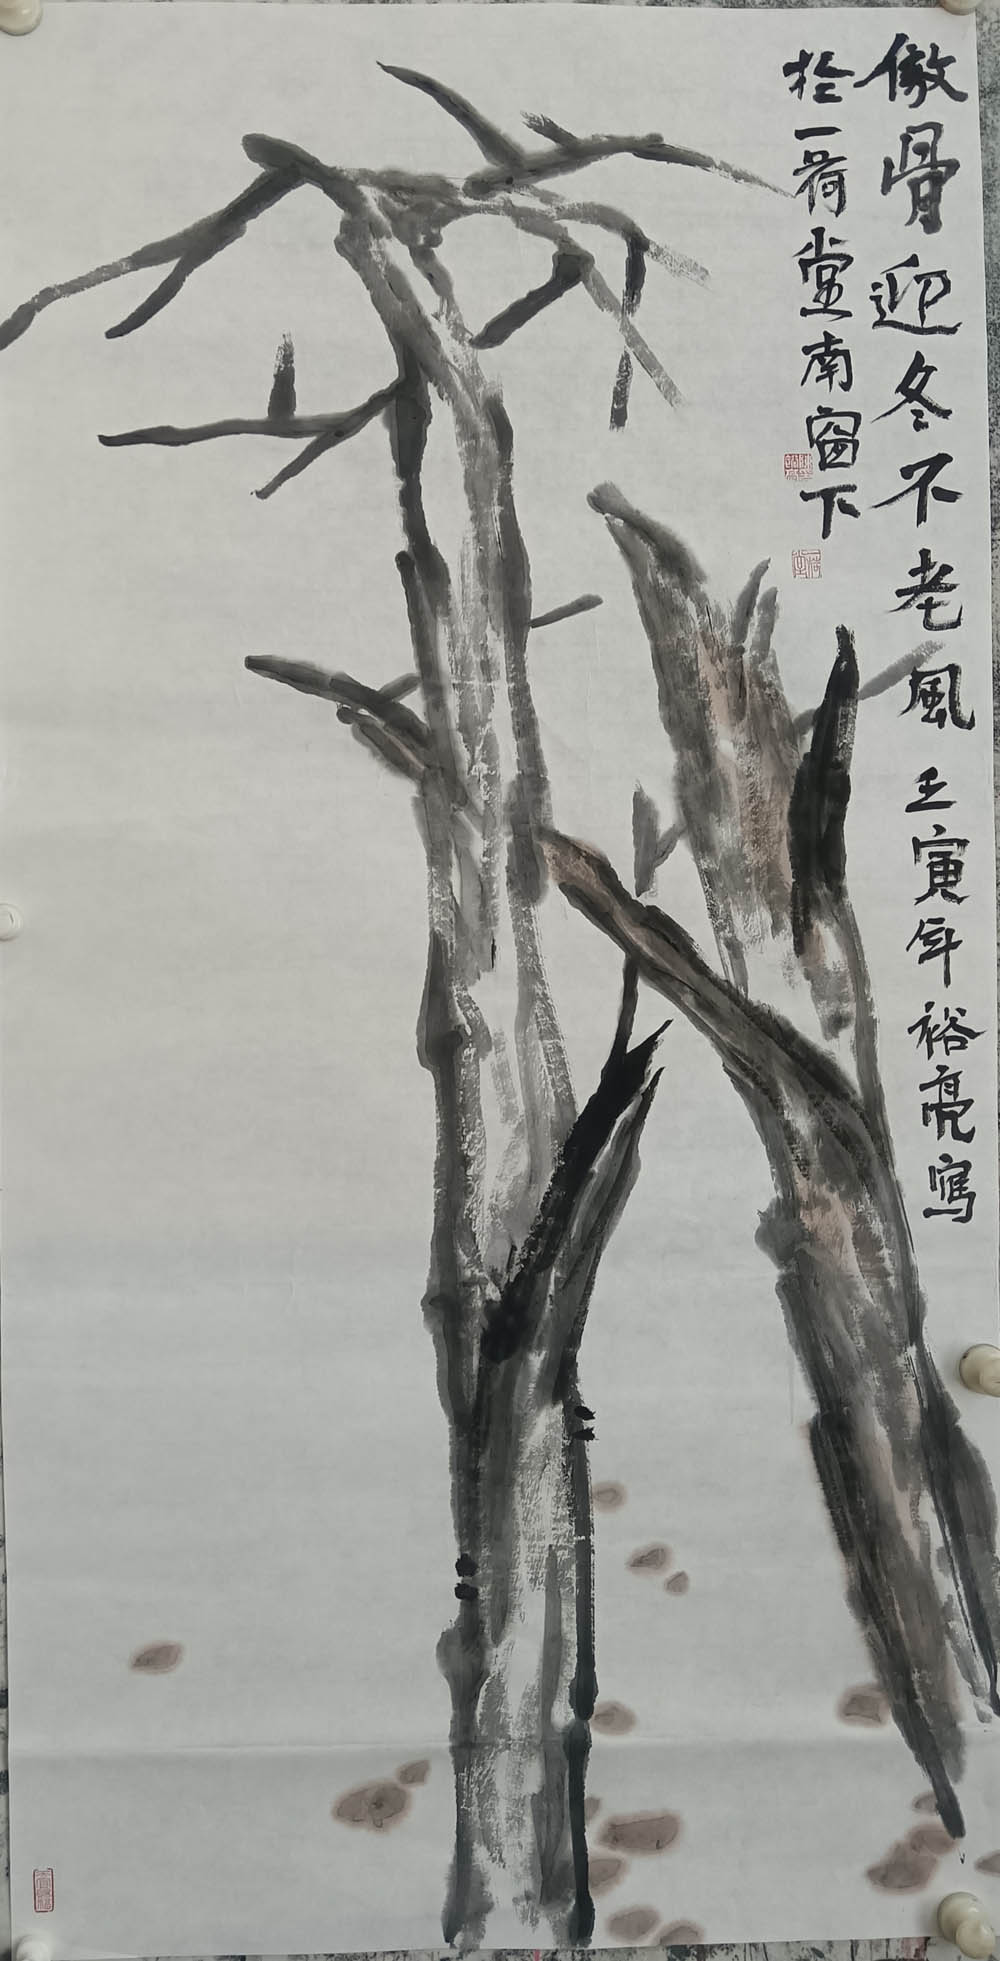 傲骨迎冬不老風 壬寅年裕亮寫
於一荷堂南窗下
一荷堂